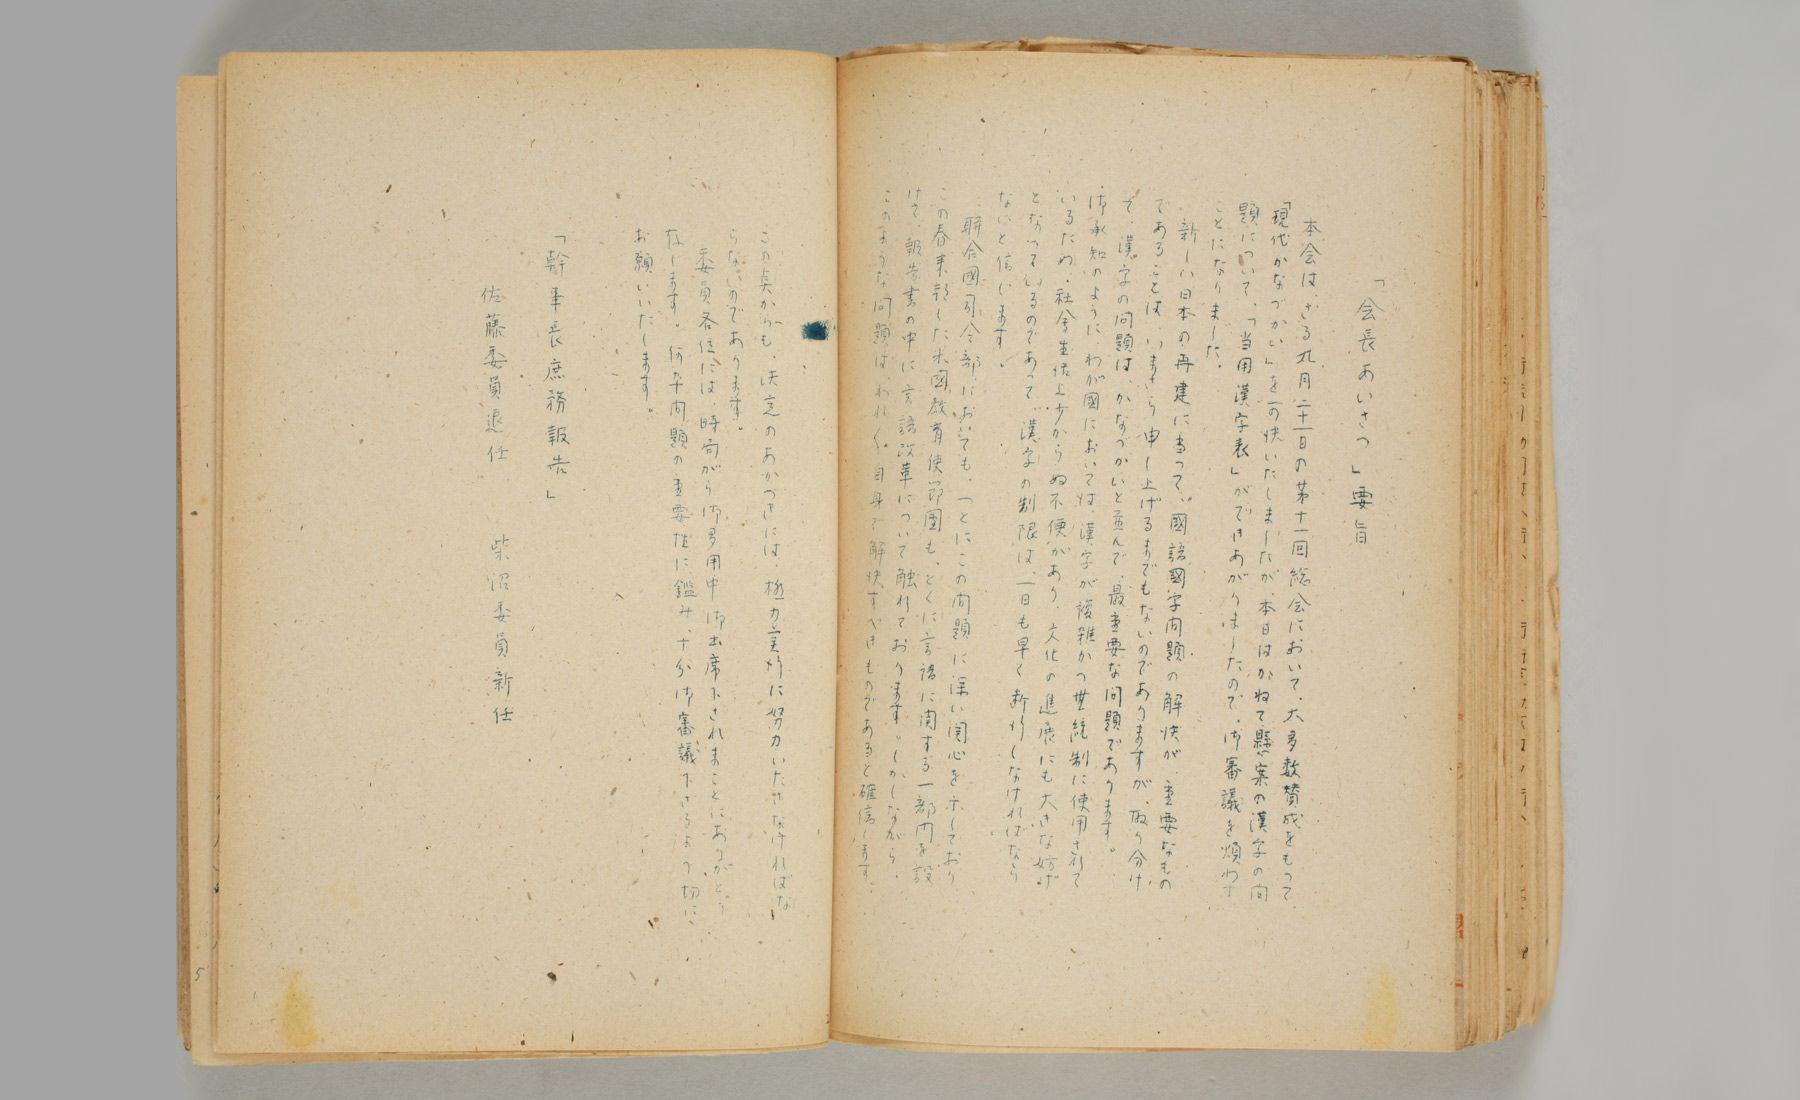 「会長あいさつ」要旨
本会は、さる九月二十一日の第十一回総会において、大多数賛成をもって、
「現代かなづかい」を可決いたしましたが、本日はかねて懸案の漢字の問
題について、「当用漢字表」ができあがりましたので、御審議を煩わす
ことになりました。
新しい日本の再建に当って、國語國字問題の解決が、重要なもの
であることは、いまさら申し上げるまでもないのでありますが、取り分け
て、漢字の問題は、かなづかいと並んで、最重要な問題であります。
御承知のように、わが國においては、漢字が複雑かつ無統制に使用されて
いるため、社会生活上少からぬ不便があり、文化の進展にも大きな妨げ
となっているのであって、漢字の制限は、一日も早く断行しなければなら
ないと信じます。
聯合國司令部においても、つとにこの問題に深い関心を示しており、
この春来朝した米國教育使節團も、とくに言語に関する一部門を設
けて、報告書の中に言語改革について触れております。しかしながら、
このような問題は、われ〳〵自身で解決すべきものであると確信します。
この点からも、決定のあかつきには、極力実行に努力いたさなければな
らないのであります。
委員各位には、時局がら御多用中御出席下されまことにありがとう
存じます。何卒問題の重要性に鑑み、十分御審議下さるよう切に
お願いいたします。
「幹事長庶務報告」
佐藤委員退任　柴沼委員新任
5